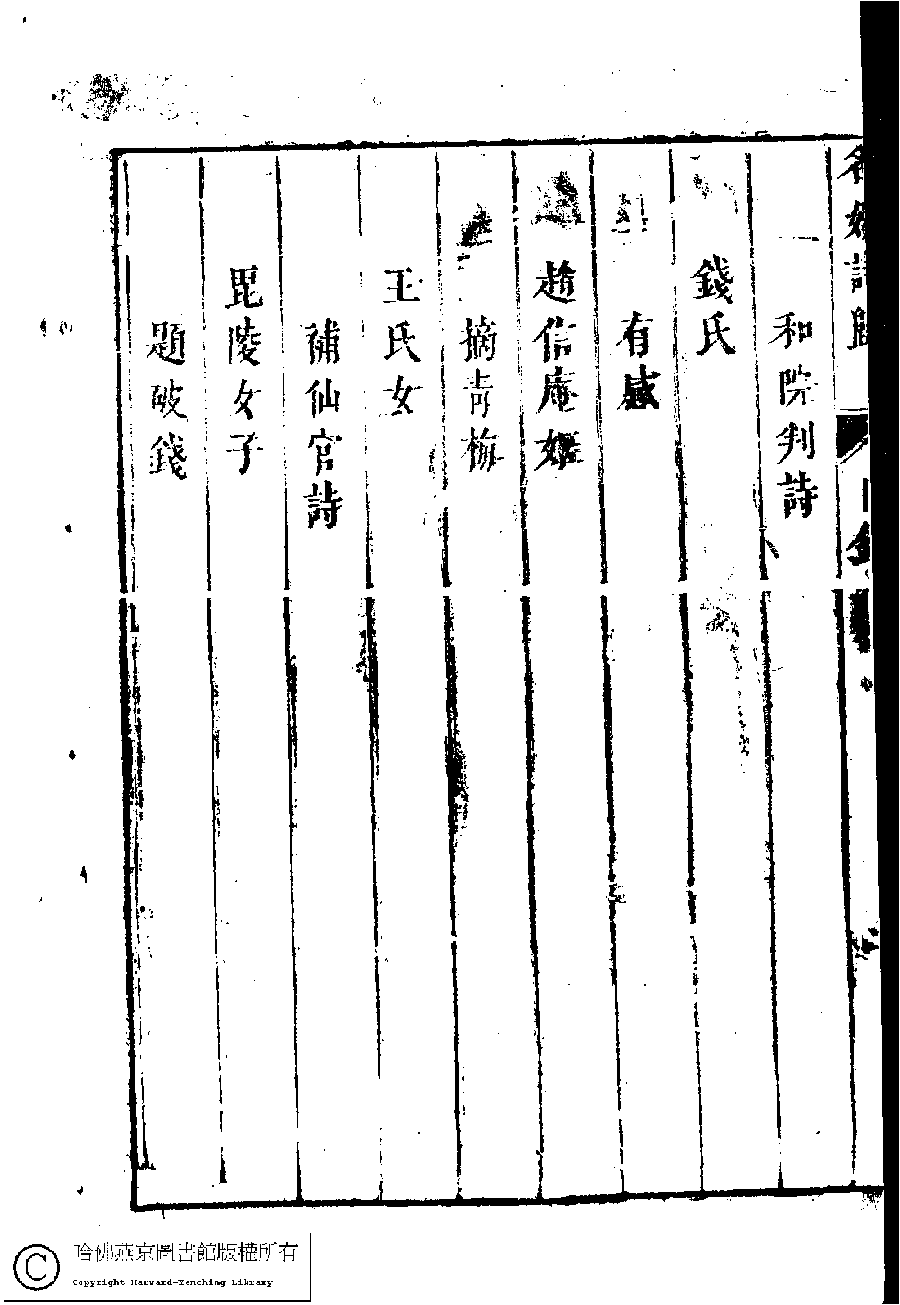 名媛詩歸
目錄
和院判詩
錢氏
有感
趙信庵姬
摘青梅
王氏女
補仙官詩
毘陵女子
題破錢
哈佛燕京圖書館版權所有
Copyright Harvard-Yenching Library